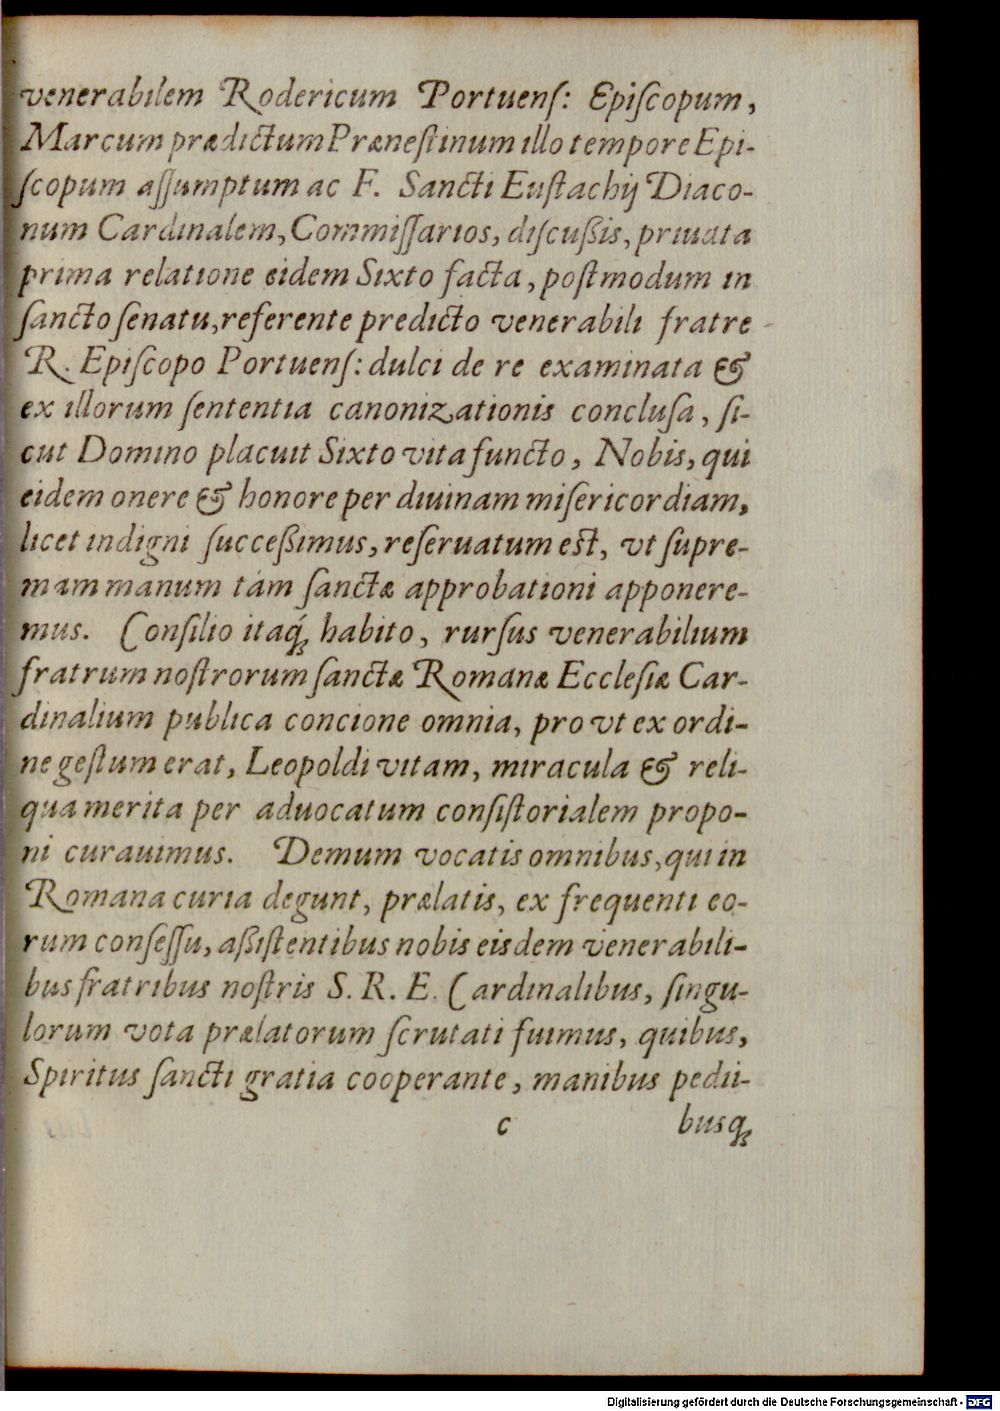 venerabilem Rodericum Portuenſ: Epiſcopum,
Marcum prædictum Præneſtinum illo tempore Epi-
ſcopum aſſumptum ac F. Sancti Euſtachij Diaco-
num Cardinalem, Commiſſarios, diſcußis, priuata
prima relatione eidem Sixto facta, poſtmodum in
ſancto ſenatu, referente predicto venerabili fratre
R. Epiſcopo Portuenſ: dulci de re examinata &
ex illorum ſententia canonizationis concluſa, ſi-
cut Domino placuit Sixto vita functo, Nobis, qui
eidem onere & honore per diuinam miſericordiam,
licet indigni ſucceßimus, reſeruatum est, vt ſupre-
mam manum tàm ſanctæ approbationi apponere-
mus. Conſilio itaq́; habito, rurſus venerabilium
fratrum noſtrorum ſanctæ Romanæ Eccleſiæ Car-
dinalium publica concione omnia, pro vt ex ordi-
ne geſtum erat, Leopoldi vitam, miracula & reli-
qua merita per aduocatum conſiſtorialem propo-
ni curauimus. Demum vocatis omnibus, qui in
Romana curia degunt, prælatis, ex frequenti eo-
rum conſeſſu, aßiſtentibus nobis eisdem venerabili-
bus fratribus noſtris S. R. E. Cardinalibus, ſingu-
lorum vota prælatorum ſcrutati fuimus, quibus,
Spiritus ſancti gratia cooperante, manibus pedi-
c busq;
Digitalisierung gefördert durch die Deutsche Forschungsgemeinschaft - DFG